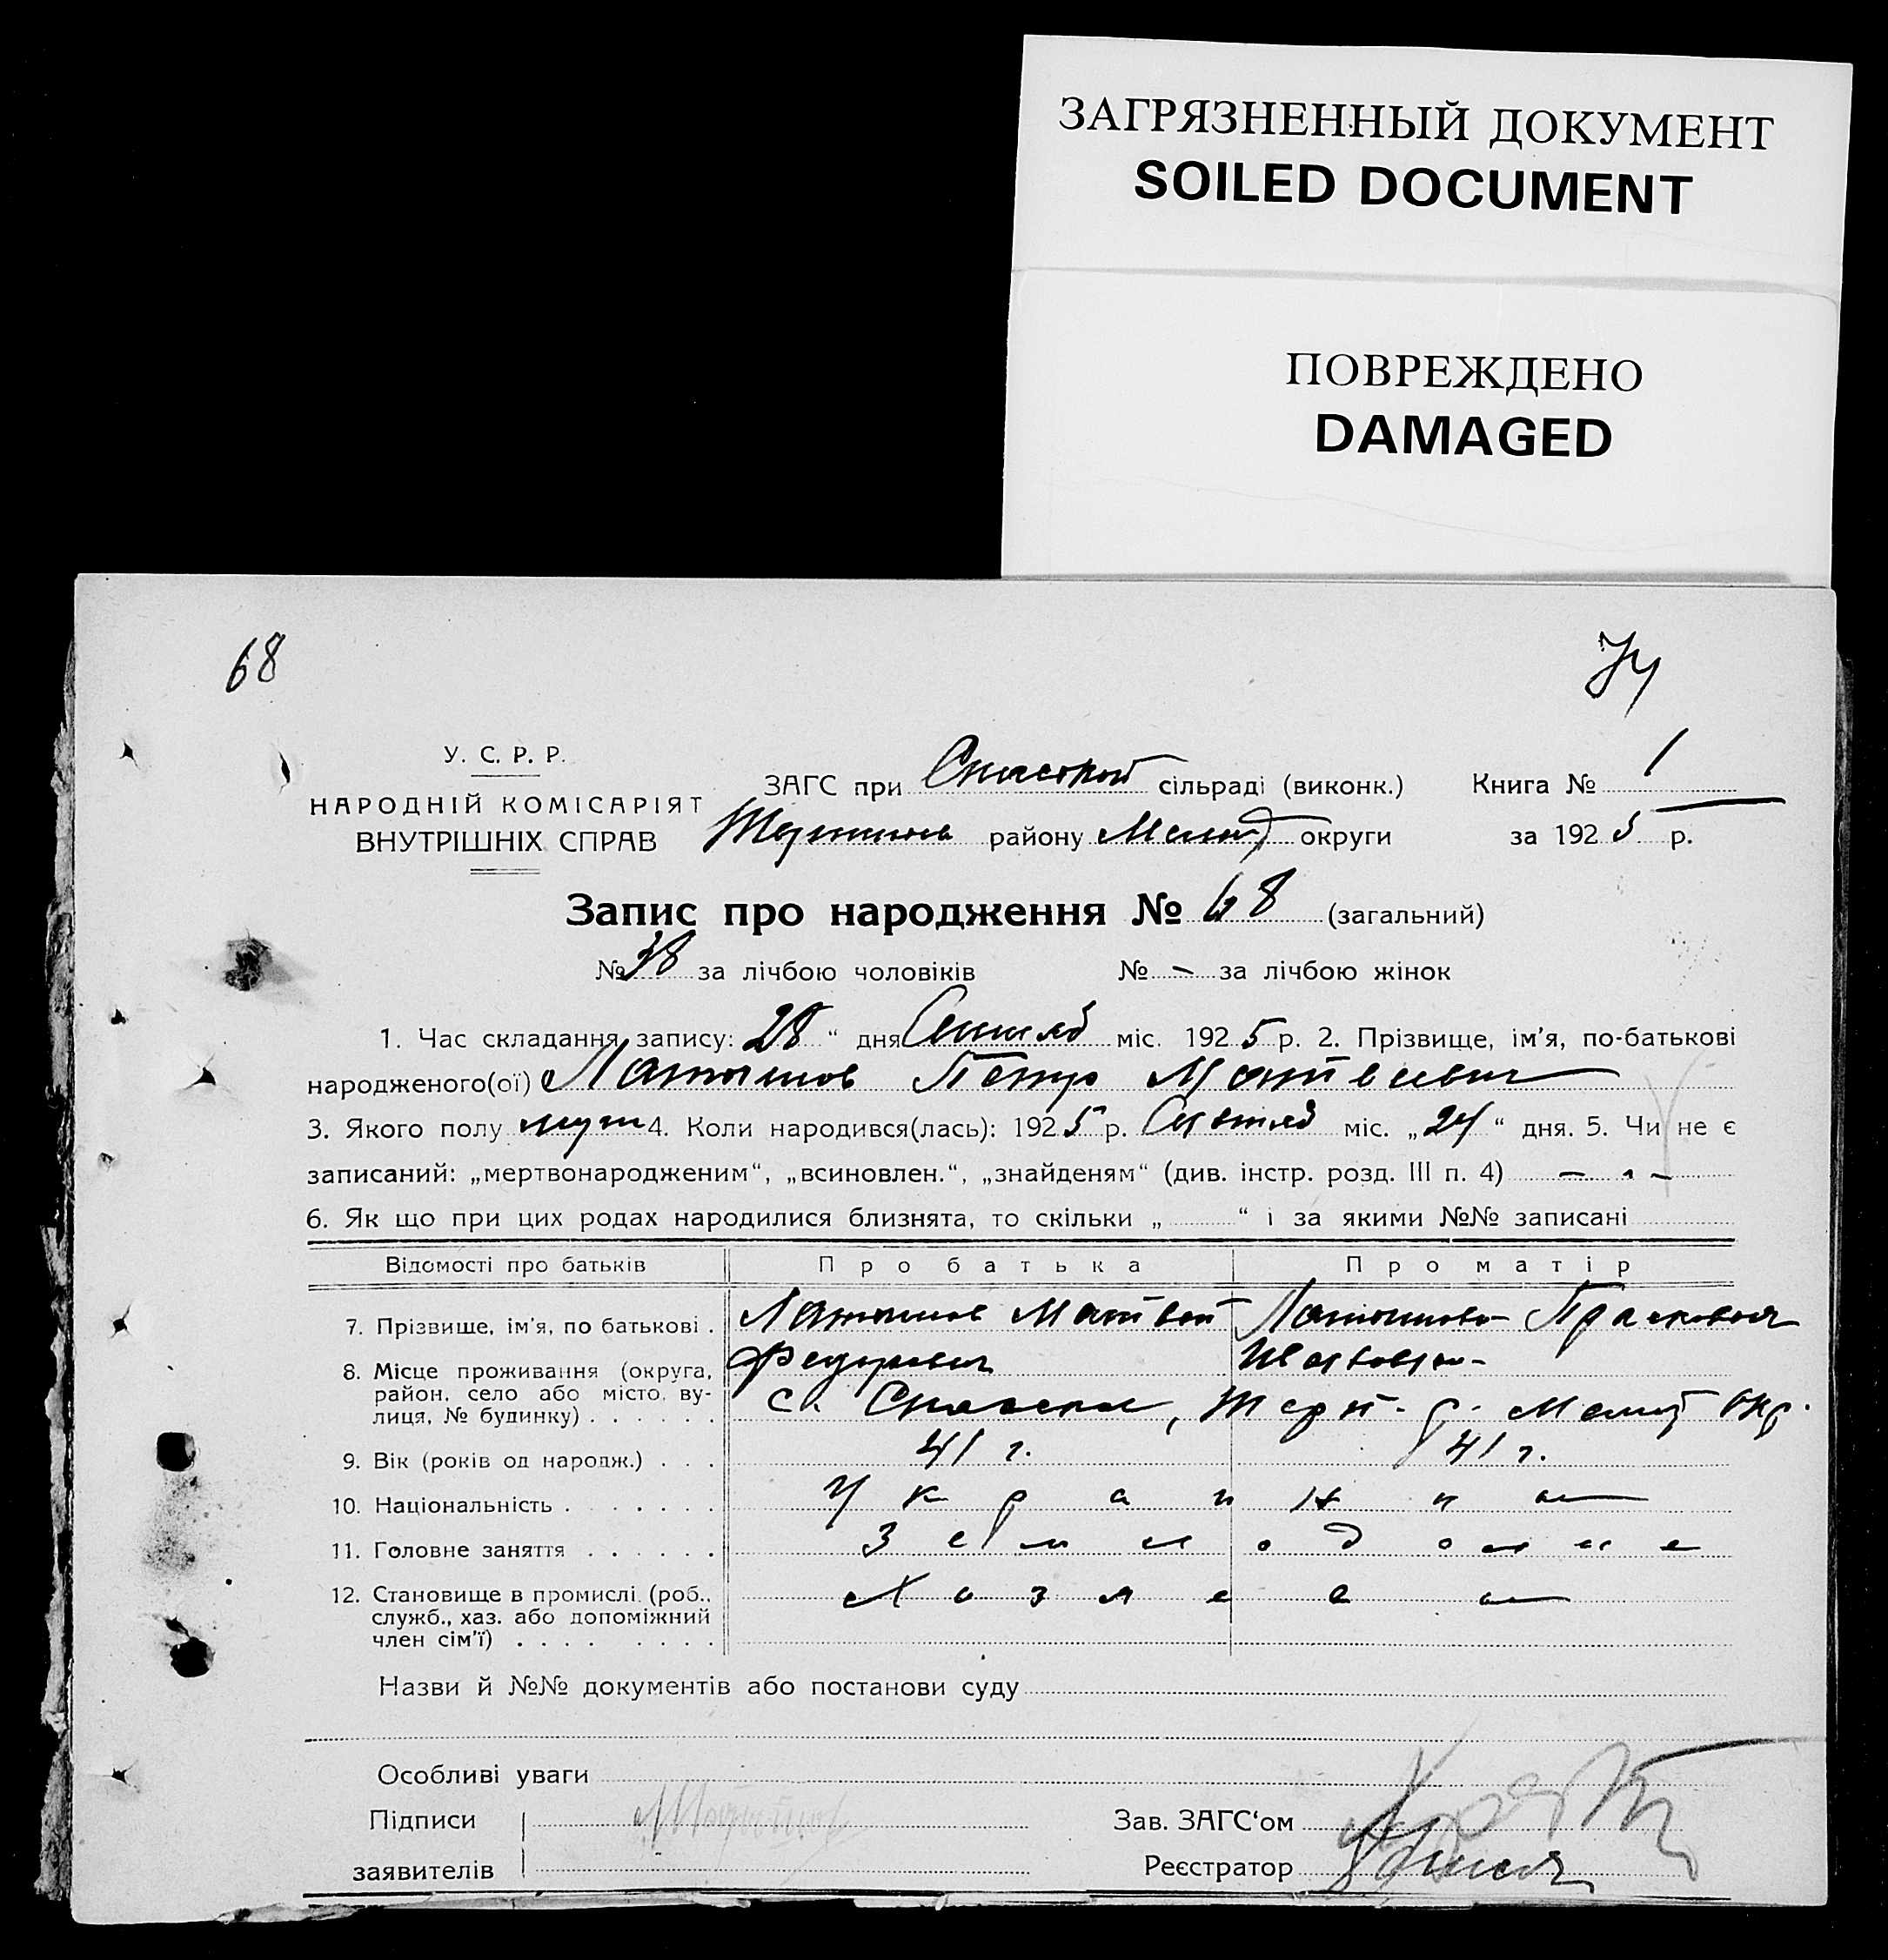 ЗАГРЯЗНЕННЫЙ ДОКУМЕНТ
SOILED DOCUMENT
ПОВРЕЖДЕНО
DAMAGED
68
74
У. С. Р. Р.
НАРОДНІЙ КОМІСАРІЯТ
ВНУТРІШНІХ СПРАВ
ЗАГС при Спасской сільраді (виконк.) Книга № 1
району Мелит округи за 1925 р.
Запис про народження № 68 (загальний)
№ 38 за лічбою чоловіків № - за лічбою жінок
1. Час складання запису: 28 “ дня Сентяб міс. 1925 р. 2. Прізвище, ім’я, по-батькові
народженого(ої) Латышов Петр Матвеевич
3. Якого полу муж 4. Коли народився(лась): 1925 р. Сентяб міс. „24“ дня. 5. Чи не є
записаний: „мертвонародженим“, „всиновлен.“, „знайденям“ (див. інстр. розд. III п. 4) — „ —
6. Як що при цих родах народилися близнята, то скільки „ “ і за якими №№ записані
Відомості про батьків Про батька Про матір
7. Прізвище, ім’я, по батькові . Латышов Матвей Латышова Прасковья
Федорович
8. Місце проживання (округа,
район, село або місто, ву-
лиця, № будинку) . . . . . . с. Спасское, Терп. р. Мелит окр.
9. Вік (років од народж.) . . . 41 г. 41 г.
10. Національність . . . . . . . Украинца
11. Головне заняття . . . . . . Земл одолие
12. Становище в промислі (роб.,
служб., хаз. або допоміжний
член сім’ї) . . . . . . . . Хозяева
Назви й №№ документів або постанови суду
Особливі уваги
Підписи
заявителів
Зав. ЗАГС‘ом
Реєстратор